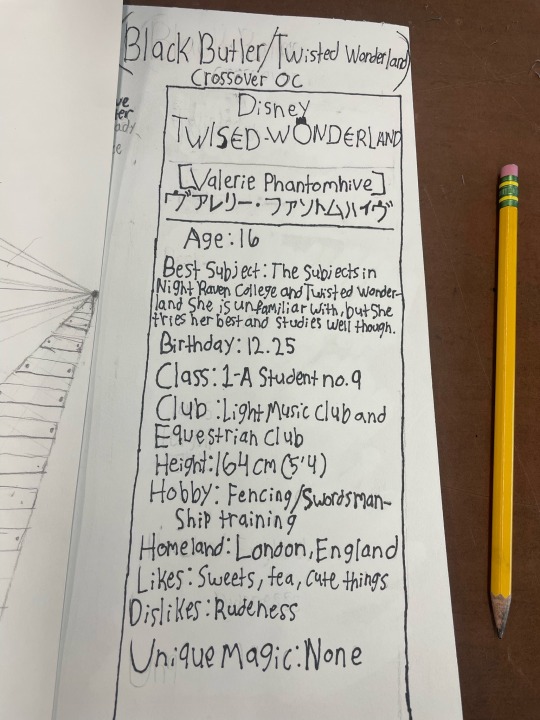 (Black Butler/Twisted Wonderland)
Crossover OC
Disney
TWISED-WONDERLAND
[Valerie Phantomhive]
ヴァレリー・ファントムハイヴ
Age: 16
Best Subject: The Subjects in
Night Raven College and Twisted Wonder-
land She is unfamiliar with, but She
tries her best and studies well though.
Birthday: 12.25
Class: 1-A Student no.9
Club: Light Music Club and
Equestrian Club
Height: 164cm (5'4)
Hobby: Fencing/Swordsman-
Ship training
Homeland: London, England
Likes: Sweets, tea, cute things
Dislikes: Rudeness
Unique Magic: None